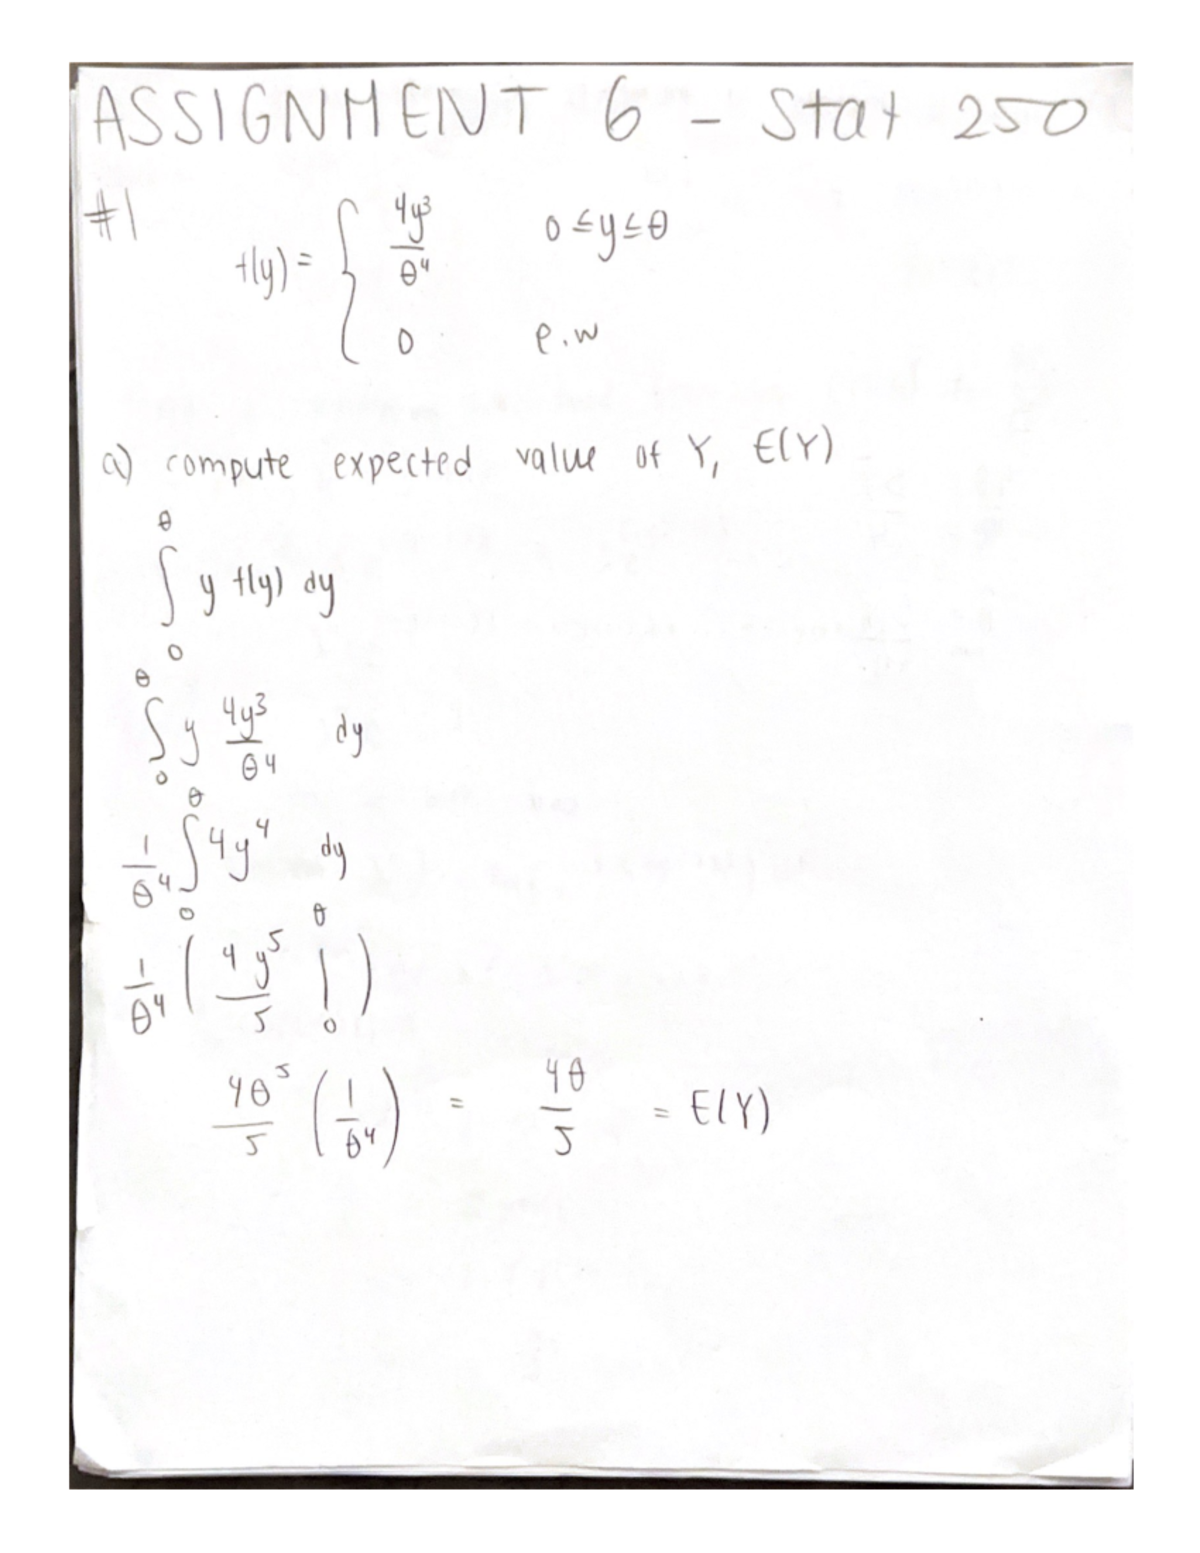 ASSIGNMENT 6 - Stat 250
#1
f(y) = { 4y³/θ⁴ 0 ≤ y ≤ θ
0 e.w
a) compute expected value of Y, E(Y)
∫₀^θ y f(y) dy
∫₀^θ y 4y³/θ⁴ dy
1/θ⁴ ∫₀^θ 4y⁴ dy
1/θ⁴ ( 4y⁵/5 |₀^θ )
4θ⁵/5 (1/θ⁴) = 4θ/5 = E(Y)